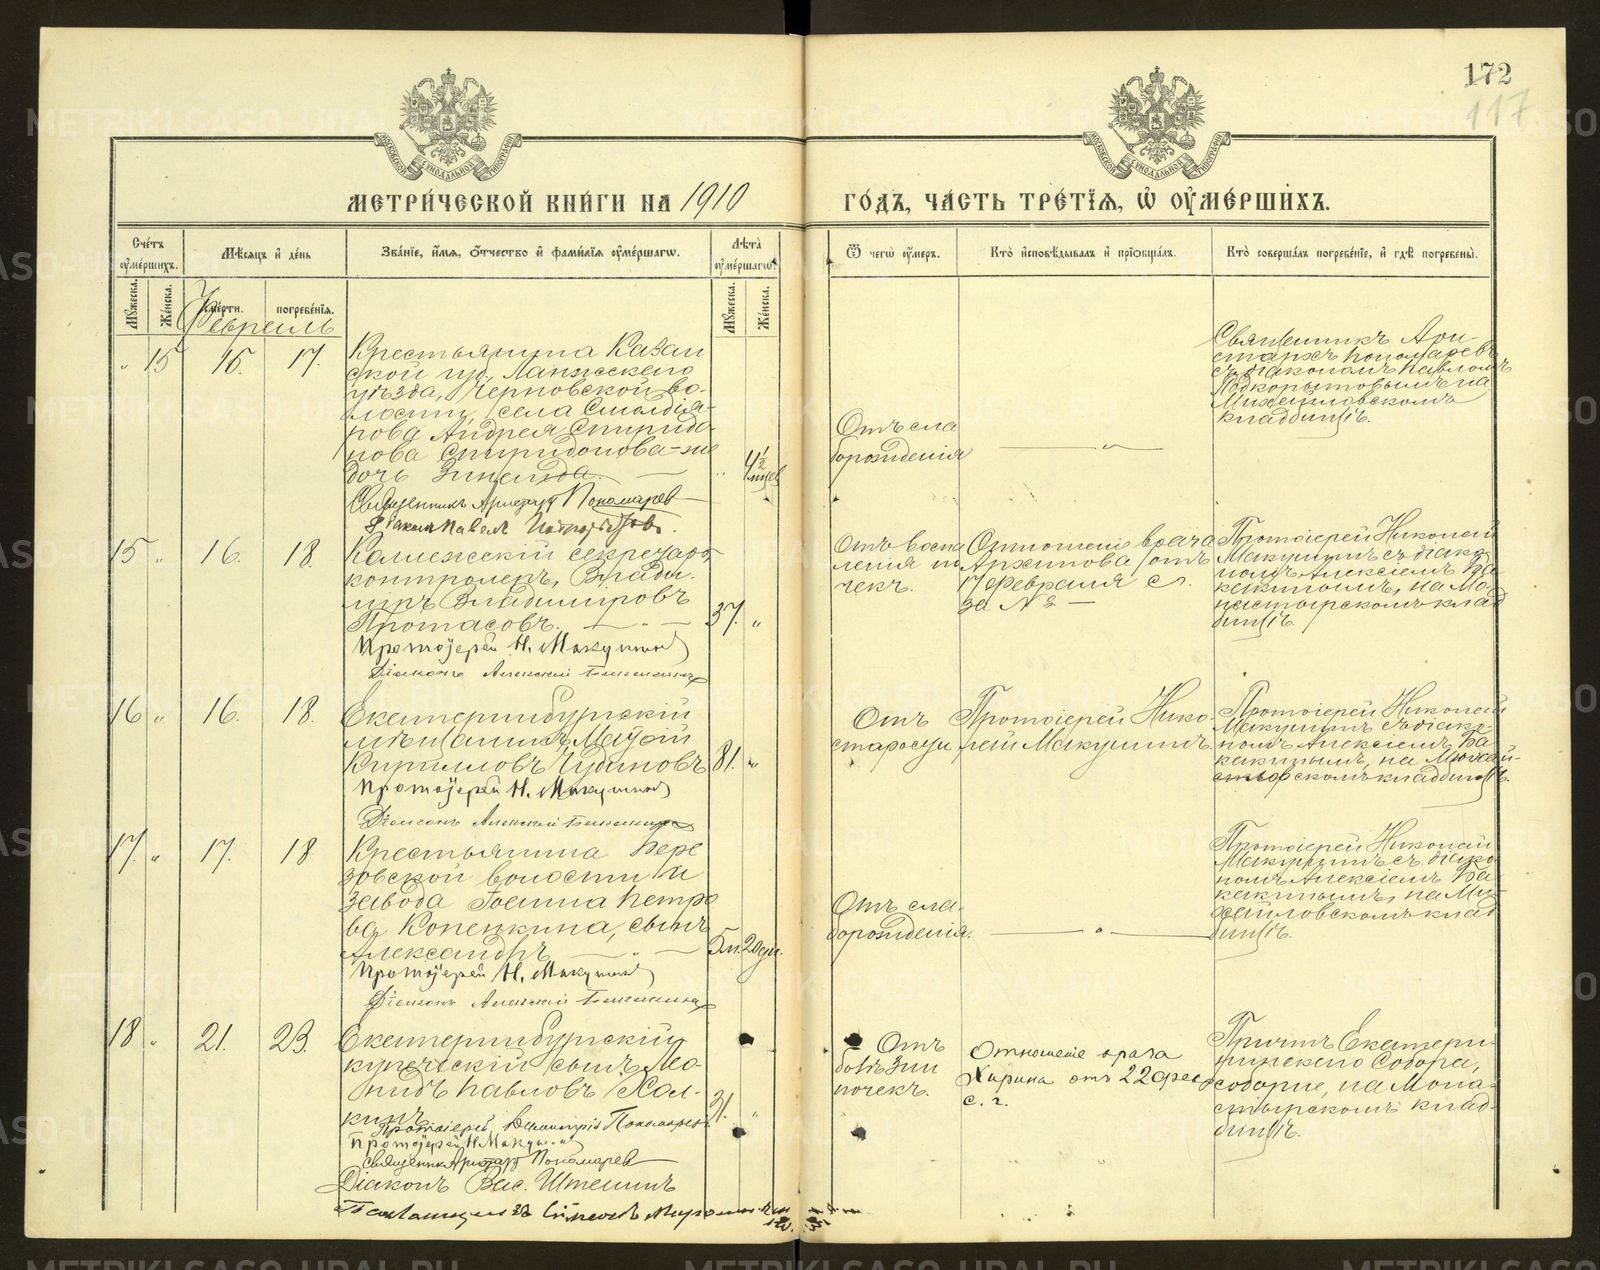 172
117
МЕТРИ́ЧЕСКОЙ КНИ́ГИ НА 1910
ГО́ДЪ, ЧА́СТЬ ТРЕ́ТІѦ, Ѡ ОУМЕ́РШИХЪ.
Сче́тъ оумершихъ.
Мѣсяцъ и день
Званіе, имя, отчество и фамилія оумершагѡ.
Лѣта оумершагѡ.
Ѿ чегѡ оумеръ.
Кто исповѣдывалъ и пріобщалъ.
Кто совершалъ погребеніе, и гдѣ погребены.
Мужеска.
Женска.
смерти.
погребенія.
Мужеска.
Женска.
Февраль
„ 15 16. 17.
Крестьянина Казан
ской губ. Лаишевскаго
уѣзда, Черповской во-
лости, села
рова Андрея Спиридо
нова Спиридонова-же
дочь Зинаида. „ 4½ мцев
Священникъ Аристархъ Пономарев
Діакон Павелъ
Отъ сла
борожденія
Священникъ Ари
стархъ Пономаревъ
съ діакономъ Павломъ
Подкорытовымъ на
Михайловскомъ
кладбищѣ.
15 „ 16. 18.
Коллежскій секретарь,
контролеръ, Влади-
міръ Владиміровъ
Протасовъ. 37. „
Протоіерей Н. Макушинъ
Діаконъ Алексій Бакакинъ
Отъ воспа
ленія по
чекъ.
Отношеніе врача
Архипова отъ
17 февраля с. г.
за №
Протоіерей Николай
Макушинъ съ діако
номъ Алексіемъ Ба
какинымъ, на Мо
настырскомъ клад
бищѣ.
16 „ 16. 18.
Екатеринбургскій
мѣщанинъ Матѳій
Кирилловъ Чудиновъ 81. „
Протоіерей Н. Макушинъ
Діаконъ Алексій Бакакинъ
Отъ
старости
Протоіерей Нико-
лай Макушинъ.
Протоіерей Николай
Макушинъ съ діако-
номъ Алексіемъ Ба
какинымъ, на Михай-
ловскомъ кладбищѣ.
17. „ 17. 18
Крестьянина Бере
зовской волости и
завода Іоанна Петро
ва Копенкина, сынъ
Александръ 5 м. 20 дн.
Протоіерей Н. Макушинъ
Діаконъ Алексій Бакакинъ
Отъ сла-
борожденія.
Протоіерей Николай
Макушинъ съ діако
номъ Алексіемъ Ба
какинымъ, на Ми-
хайловскомъ клад
бищѣ.
18 „ 21. 23.
Екатеринбургскій
купеческій сынъ Лео
нидъ Павловъ Хал-
кинъ 31. „
Протоіерей Димитрій Пономаревъ
Протоіерей Н. Макушинъ
Священникъ Аристархъ Пономарев
Діаконъ Вас. Штеминъ
Отъ
болѣзни
почекъ.
Отношеніе врача
отъ 22 фев
с. г.
Причтъ Екатери-
нинскаго Собора,
соборне, на Мона-
стырскомъ клад-
бищѣ.